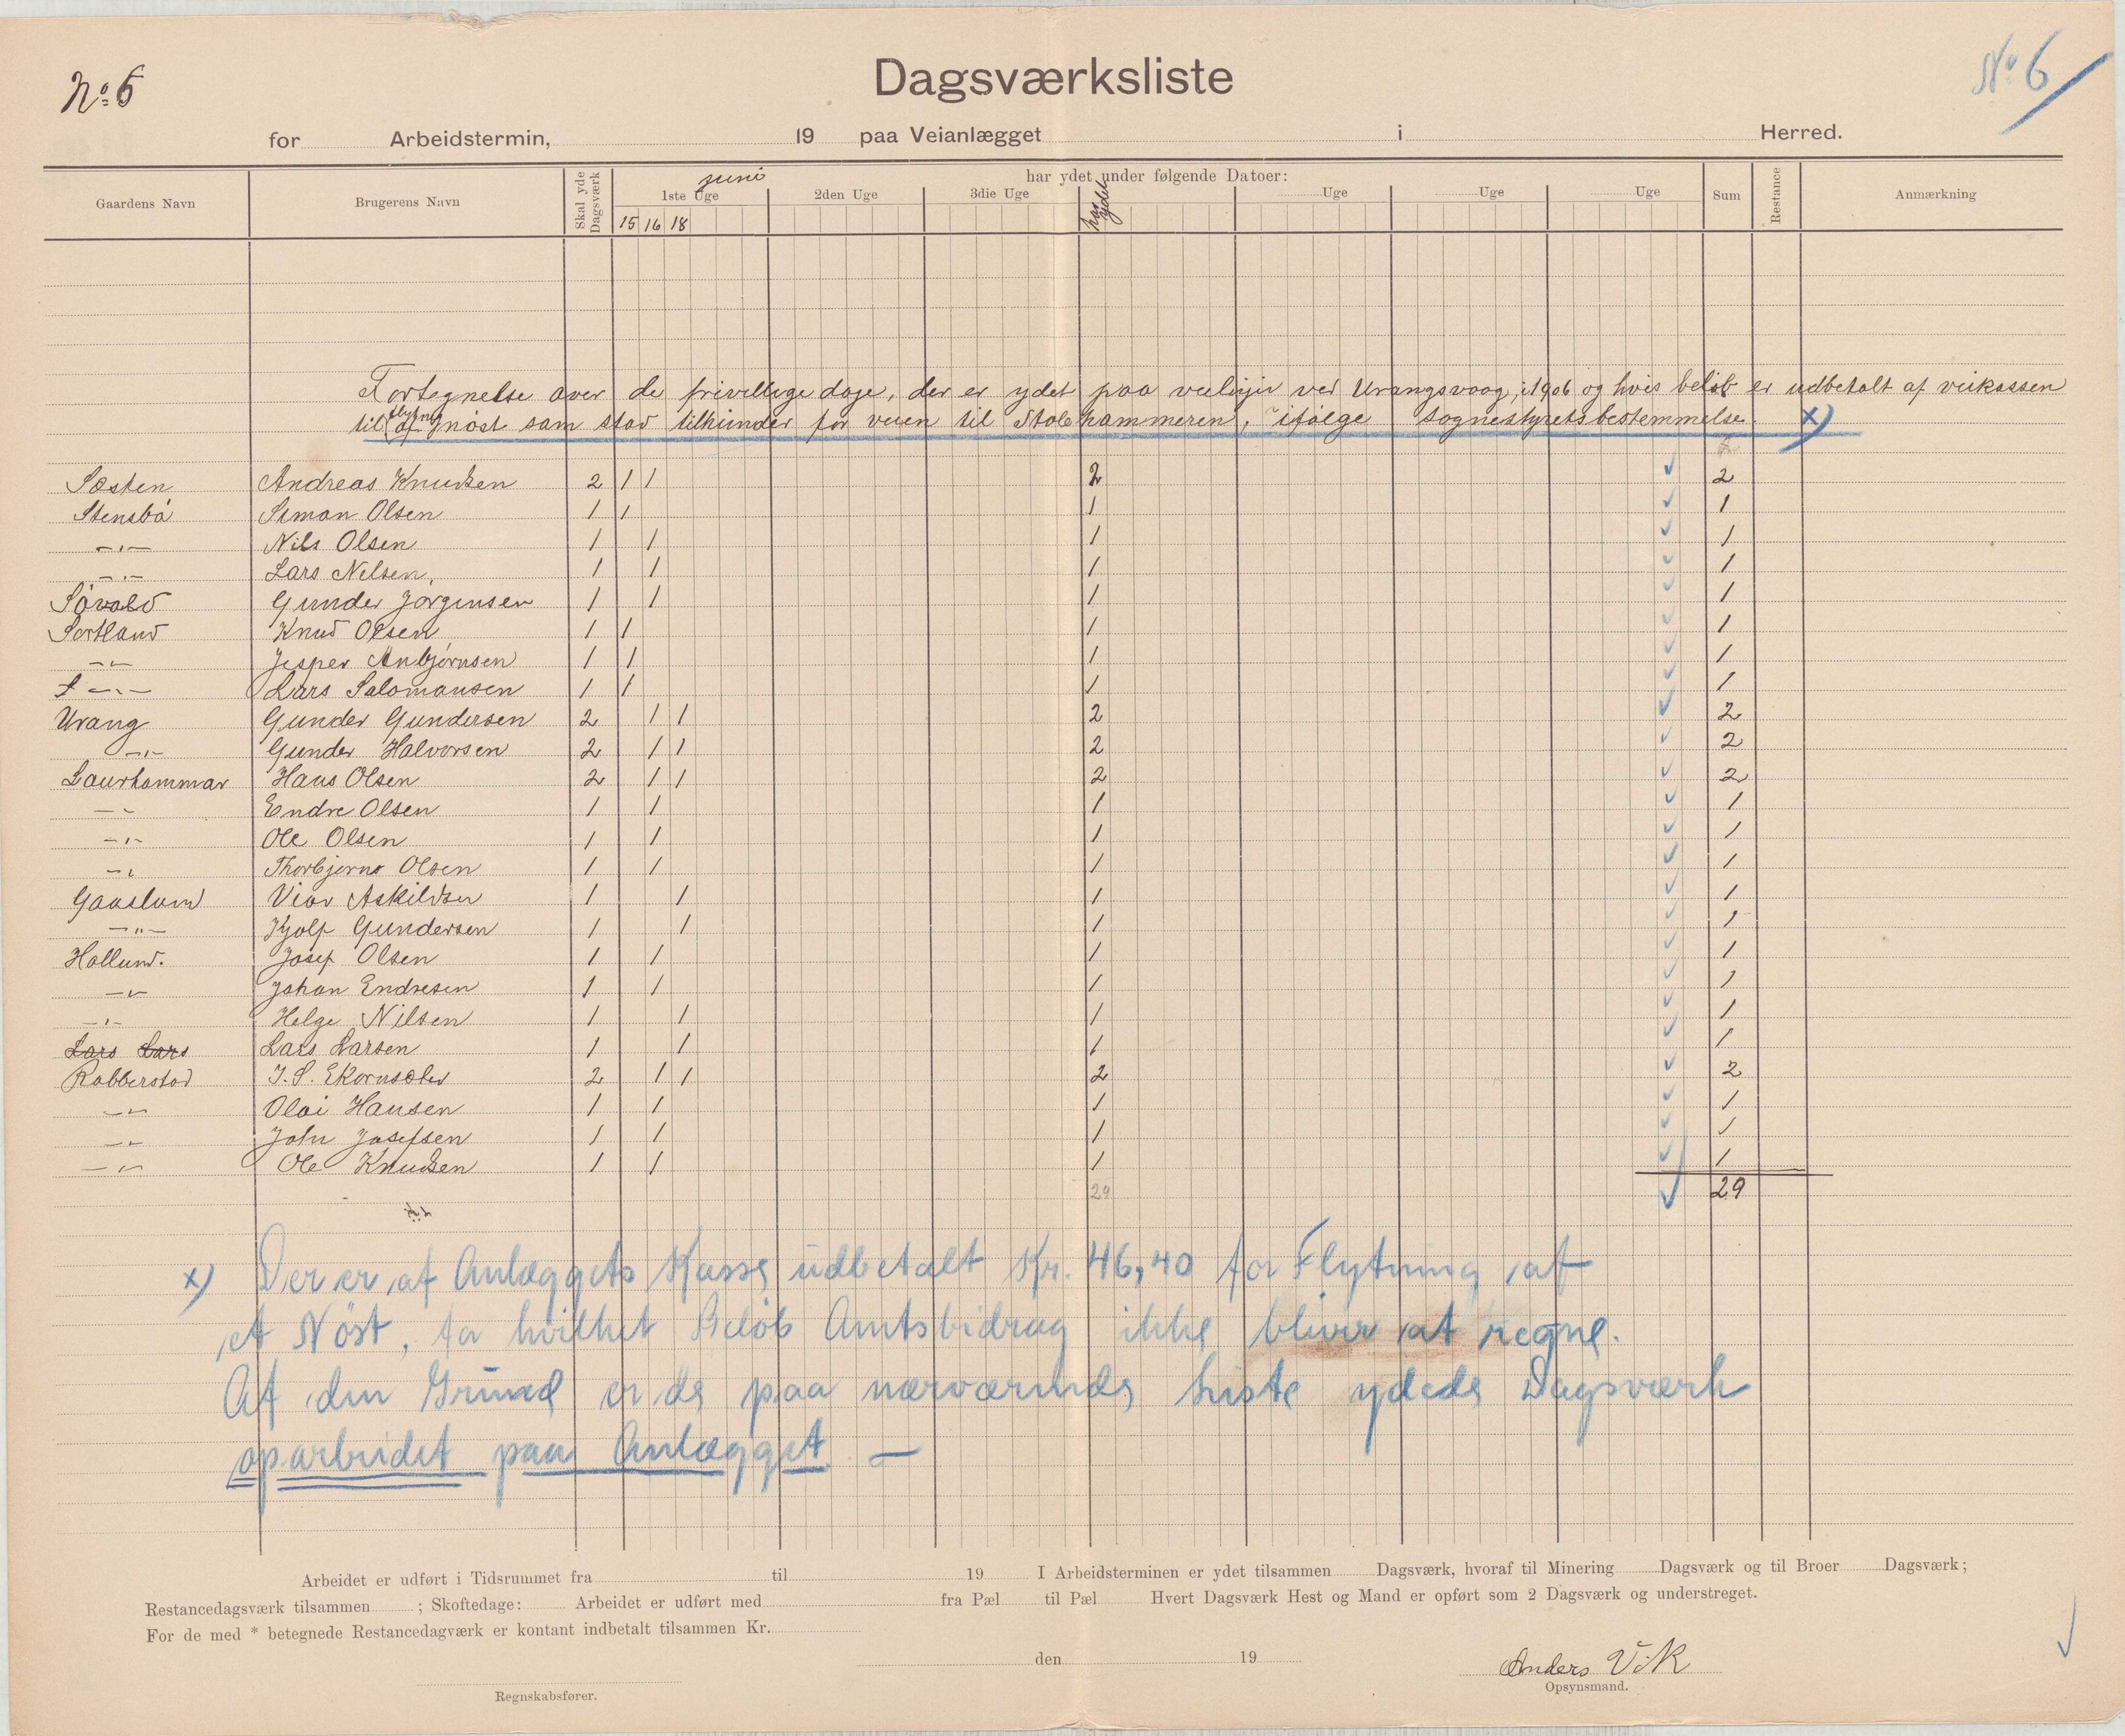 Dagsværksliste
No 6
No 6
for Arbeidstermin, 19 paa Veianlægget i Herred.
Gaardens Navn Brugerens Navn Skal yde Dagsværk har ydet under følgende Datoer: Sum Restance Anmærkning
juni
1ste Uge 2den Uge 3die Uge har ydet Uge Uge Uge
15 16 18
Fortegnelse over de frivillige dage, der er ydet paa veilinjen ved Urangsvaag i 1906 og hvis beløb er udbetalt af veikassen
til flytning af nøst som stod tilhinder for veien til Stolehammeren, ifølge sognestyrets bestemmelse. x)
Sæsten Andreas Knudsen 2 1 1 2 2
Stensbø Simon Olsen 1 1 1 1
—"— Nils Olsen 1 1 1 1
—"— Lars Nelsen, 1 1 1 1
Søvold Gunder Jørgensen 1 1 1 1
Sortland Knud Olsen 1 1 1 1
—"— Jesper Anbjørnsen 1 1 1 1
—"— Lars Salomonsen 1 1 1 1
Urang Gunder Gundersen 2 1 1 2 2
—"— Gunder Halvorsen 2 1 1 2 2
Laurhammar Hans Olsen 2 1 1 2 2
—"— Endre Olsen 1 1 1 1
—"— Ole Olsen 1 1 1 1
—"— Thorbjørns Olsen 1 1 1 1
Gaaslund Vior Askildsen 1 1 1 1
—"— Kjolf Gundersen 1 1 1 1
Hollund. Josef Olsen 1 1 1 1
—"— Johan Endresen 1 1 1 1
—"— Helge Nilsen 1 1 1 1
Lars Lars Lars Larsen 1 1 1 1
Robberstad J. S. Ekornsæter 2 1 1 2 2
—"— Olai Hansen 1 1 1 1
—"— John Josefsen 1 1 1 1
—"— Ole Knudsen 1 1 1 1
29 29
x) Der er af Anlæggets Kasse udbetalt Kr. 46,40 for Flytning af
et Nøst, for hvilket Beløb Amtsbidrag ikke bliver at regne.
Af den Grund er de paa nærværende Liste ydede Dagsværk
oparbeidet paa Anlægget —
Arbeidet er udført i Tidsrummet fra til 19 I Arbeidsterminen er ydet tilsammen Dagsværk, hvoraf til Minering Dagsværk og til Broer Dagsværk;
Restancedagsværk tilsammen ; Skoftedage: Arbeidet er udført med fra Pæl til Pæl Hvert Dagsværk Hest og Mand er opført som 2 Dagsværk og understreget.
For de med * betegnede Restancedagværk er kontant indbetalt tilsammen Kr.
den 19
Anders Vik
Regnskabsfører. Opsynsmand.